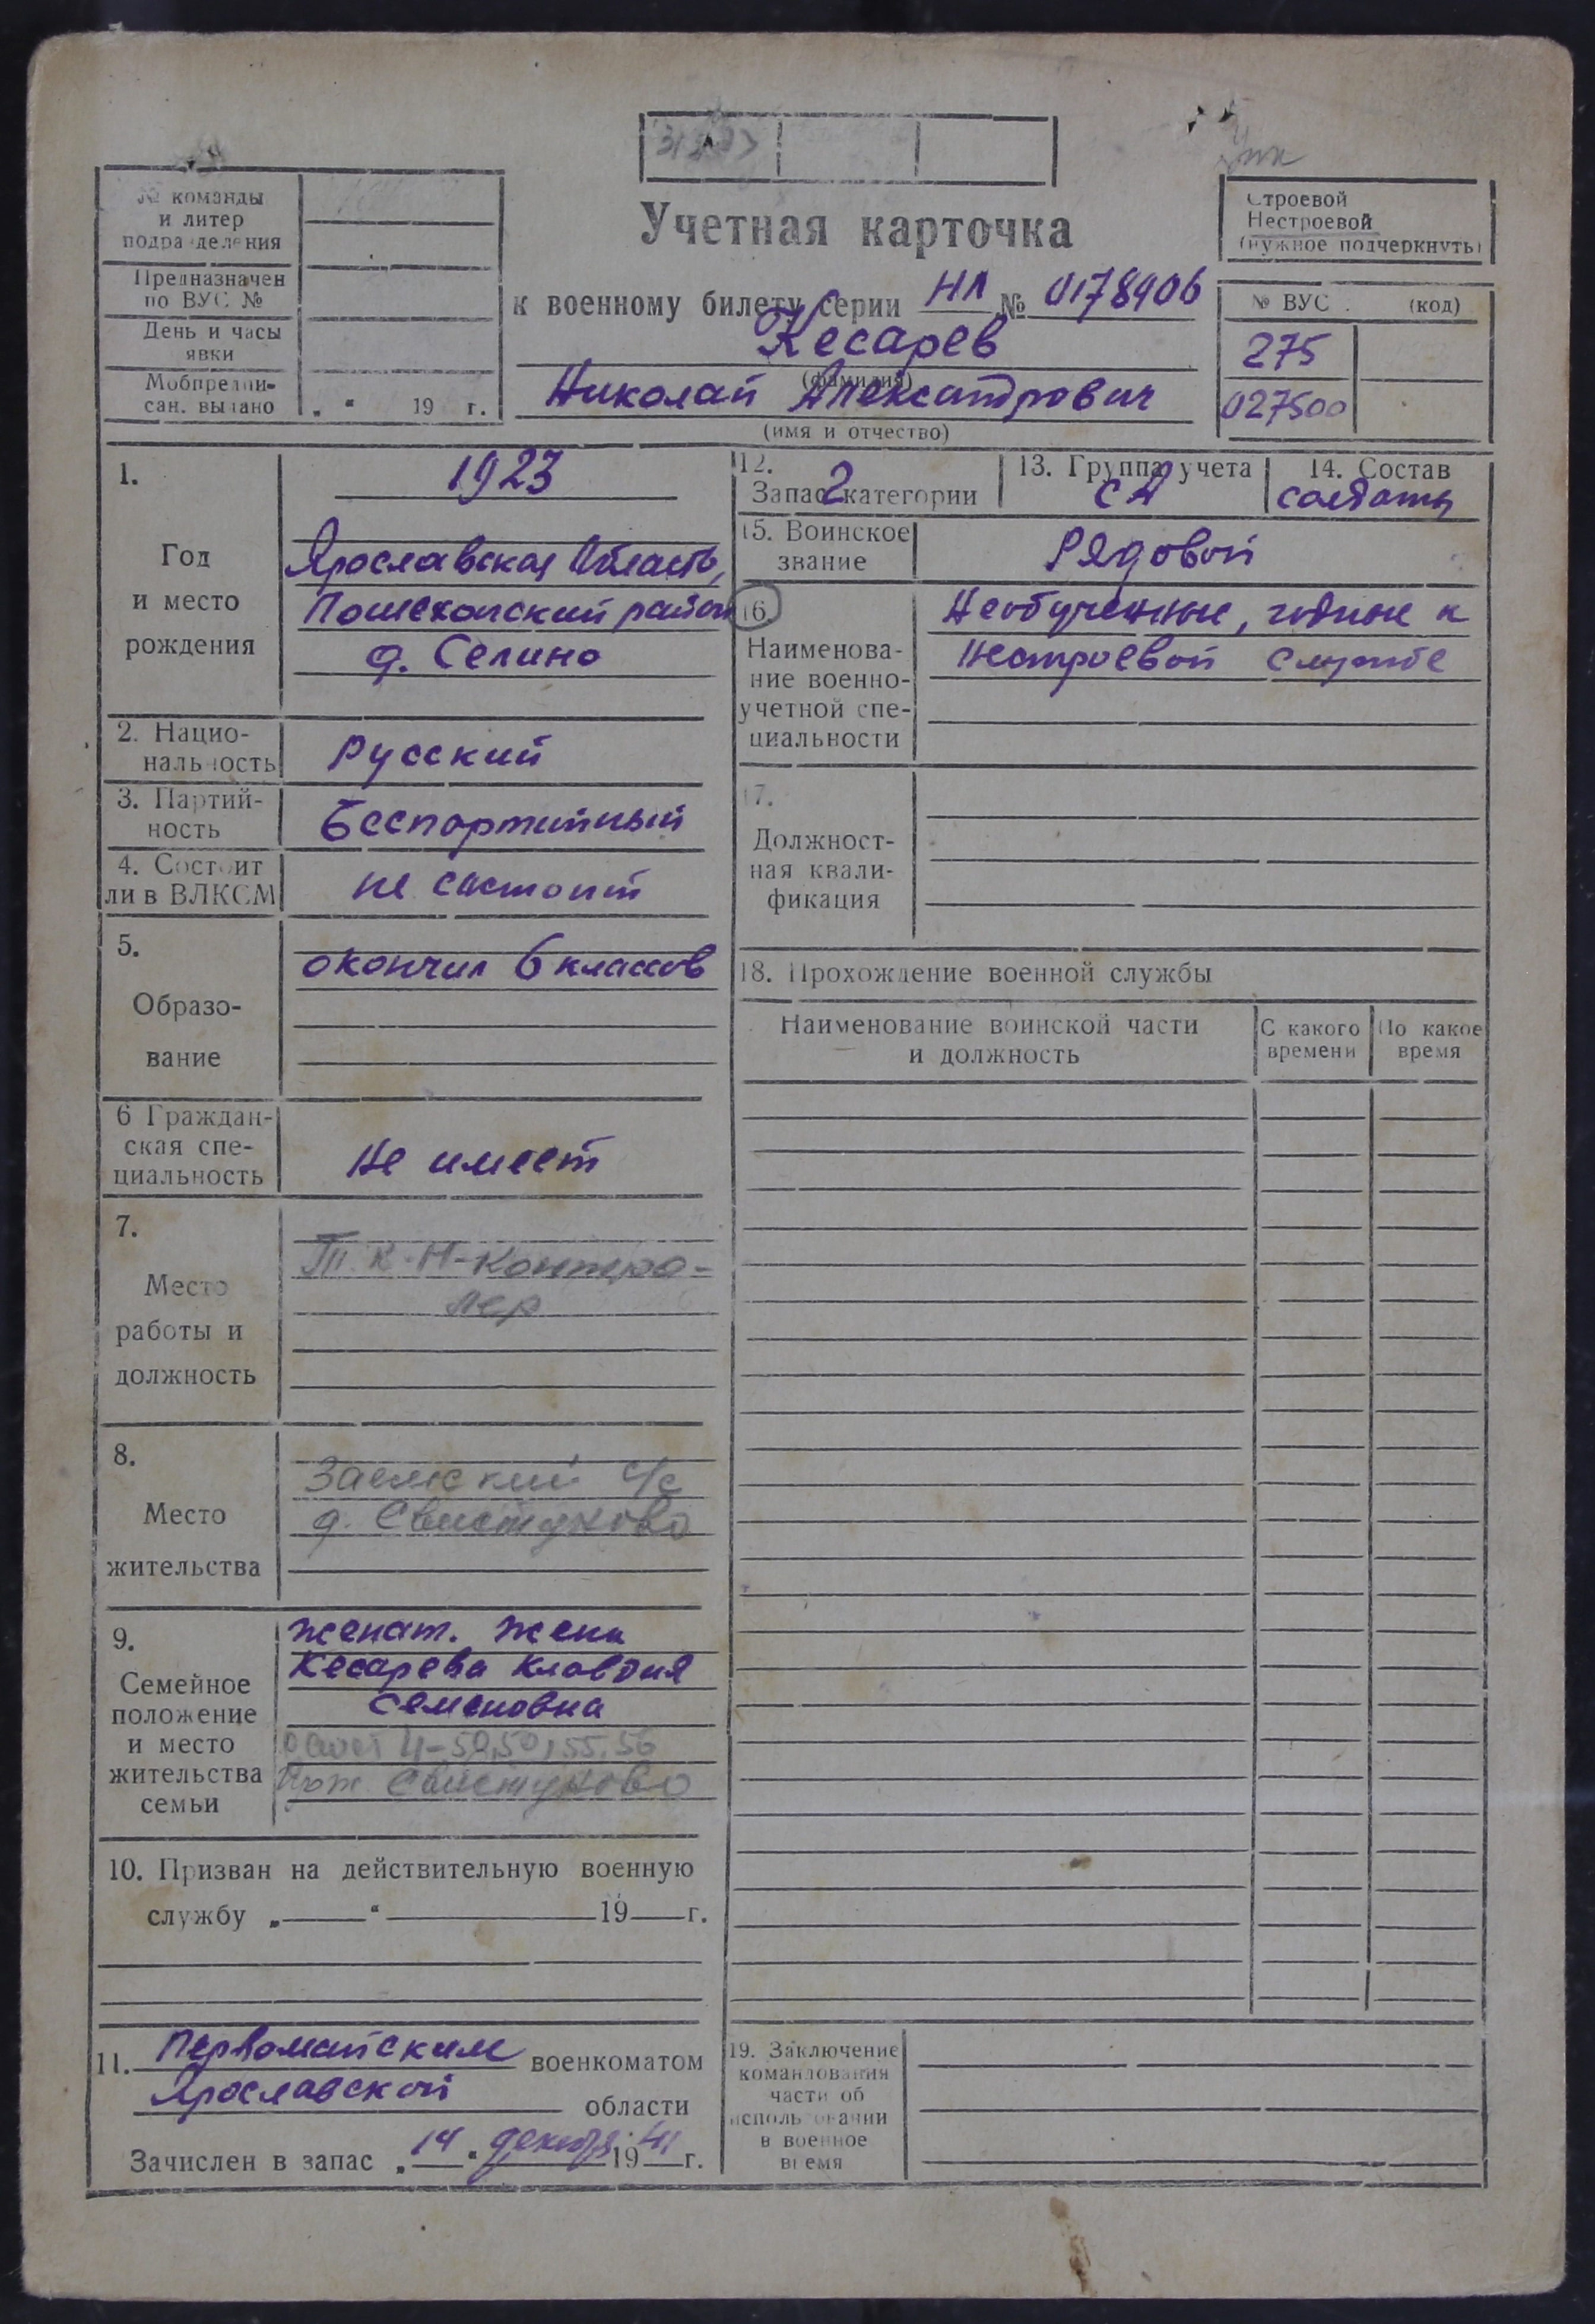 № команды
и литер
подразделения
Предназначен
по ВУС №
День и часы
явки
Мобпредпи-
сан. выдано
„ “ 19 г.
Учетная карточка
к военному билету серии НЛ № 0178906
Кесарев
(фамилия)
Николай Александрович
(имя и отчество)
Строевой
Нестроевой
(нужное подчеркнуть)
№ ВУС (код)
275
027500
1.
Год
и место
рождения
1923
Ярославская область,
Пошехонский район
д. Селино
2. Нацио-
нальность
Русский
3. Партий-
ность
Беспартийный
4. Состоит
ли в ВЛКСМ
не состоит
5.
Образо-
вание
окончил 6 классов
6 Граждан-
ская спе-
циальность
Не имеет
7.
Место
работы и
должность
Контро-
лер
8.
Место
жительства
с/с
д. Свистуново
9.
Семейное
положение
и место
жительства
семьи
женат. Жена
Кесарева Клавдия
Семеновна
Свистуново
10. Призван на действительную военную
службу „ “ 19 г.
11. Первомайским военкоматом
Ярославской области
Зачислен в запас „14“ декабря 1941 г.
12.
Запас 2 категории
13. Группа учета
СА
14. Состав
солдаты
15. Воинское
звание
Рядовой
16.
Наименова-
ние военно-
учетной спе-
циальности
Необученные, годные к
нестроевой службе
17.
Должност-
ная квали-
фикация
18. Прохождение военной службы
Наименование воинской части
и должность
С какого
времени
По какое
время
19. Заключение
командования
части об
использовании
в военное
время